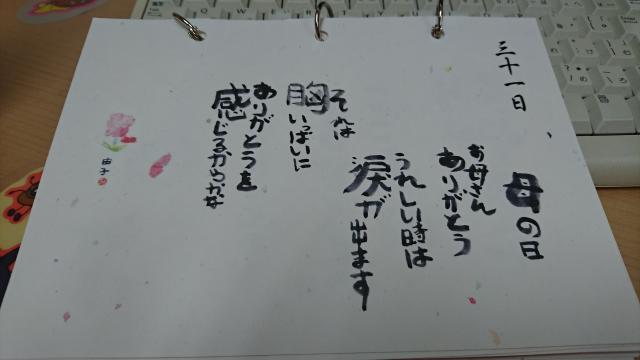 三十一日
母の日
お母さん
ありがとう
うれしい時は
涙が出ます
それは
胸いっぱいに
ありがとうを
感じるからかな
由子